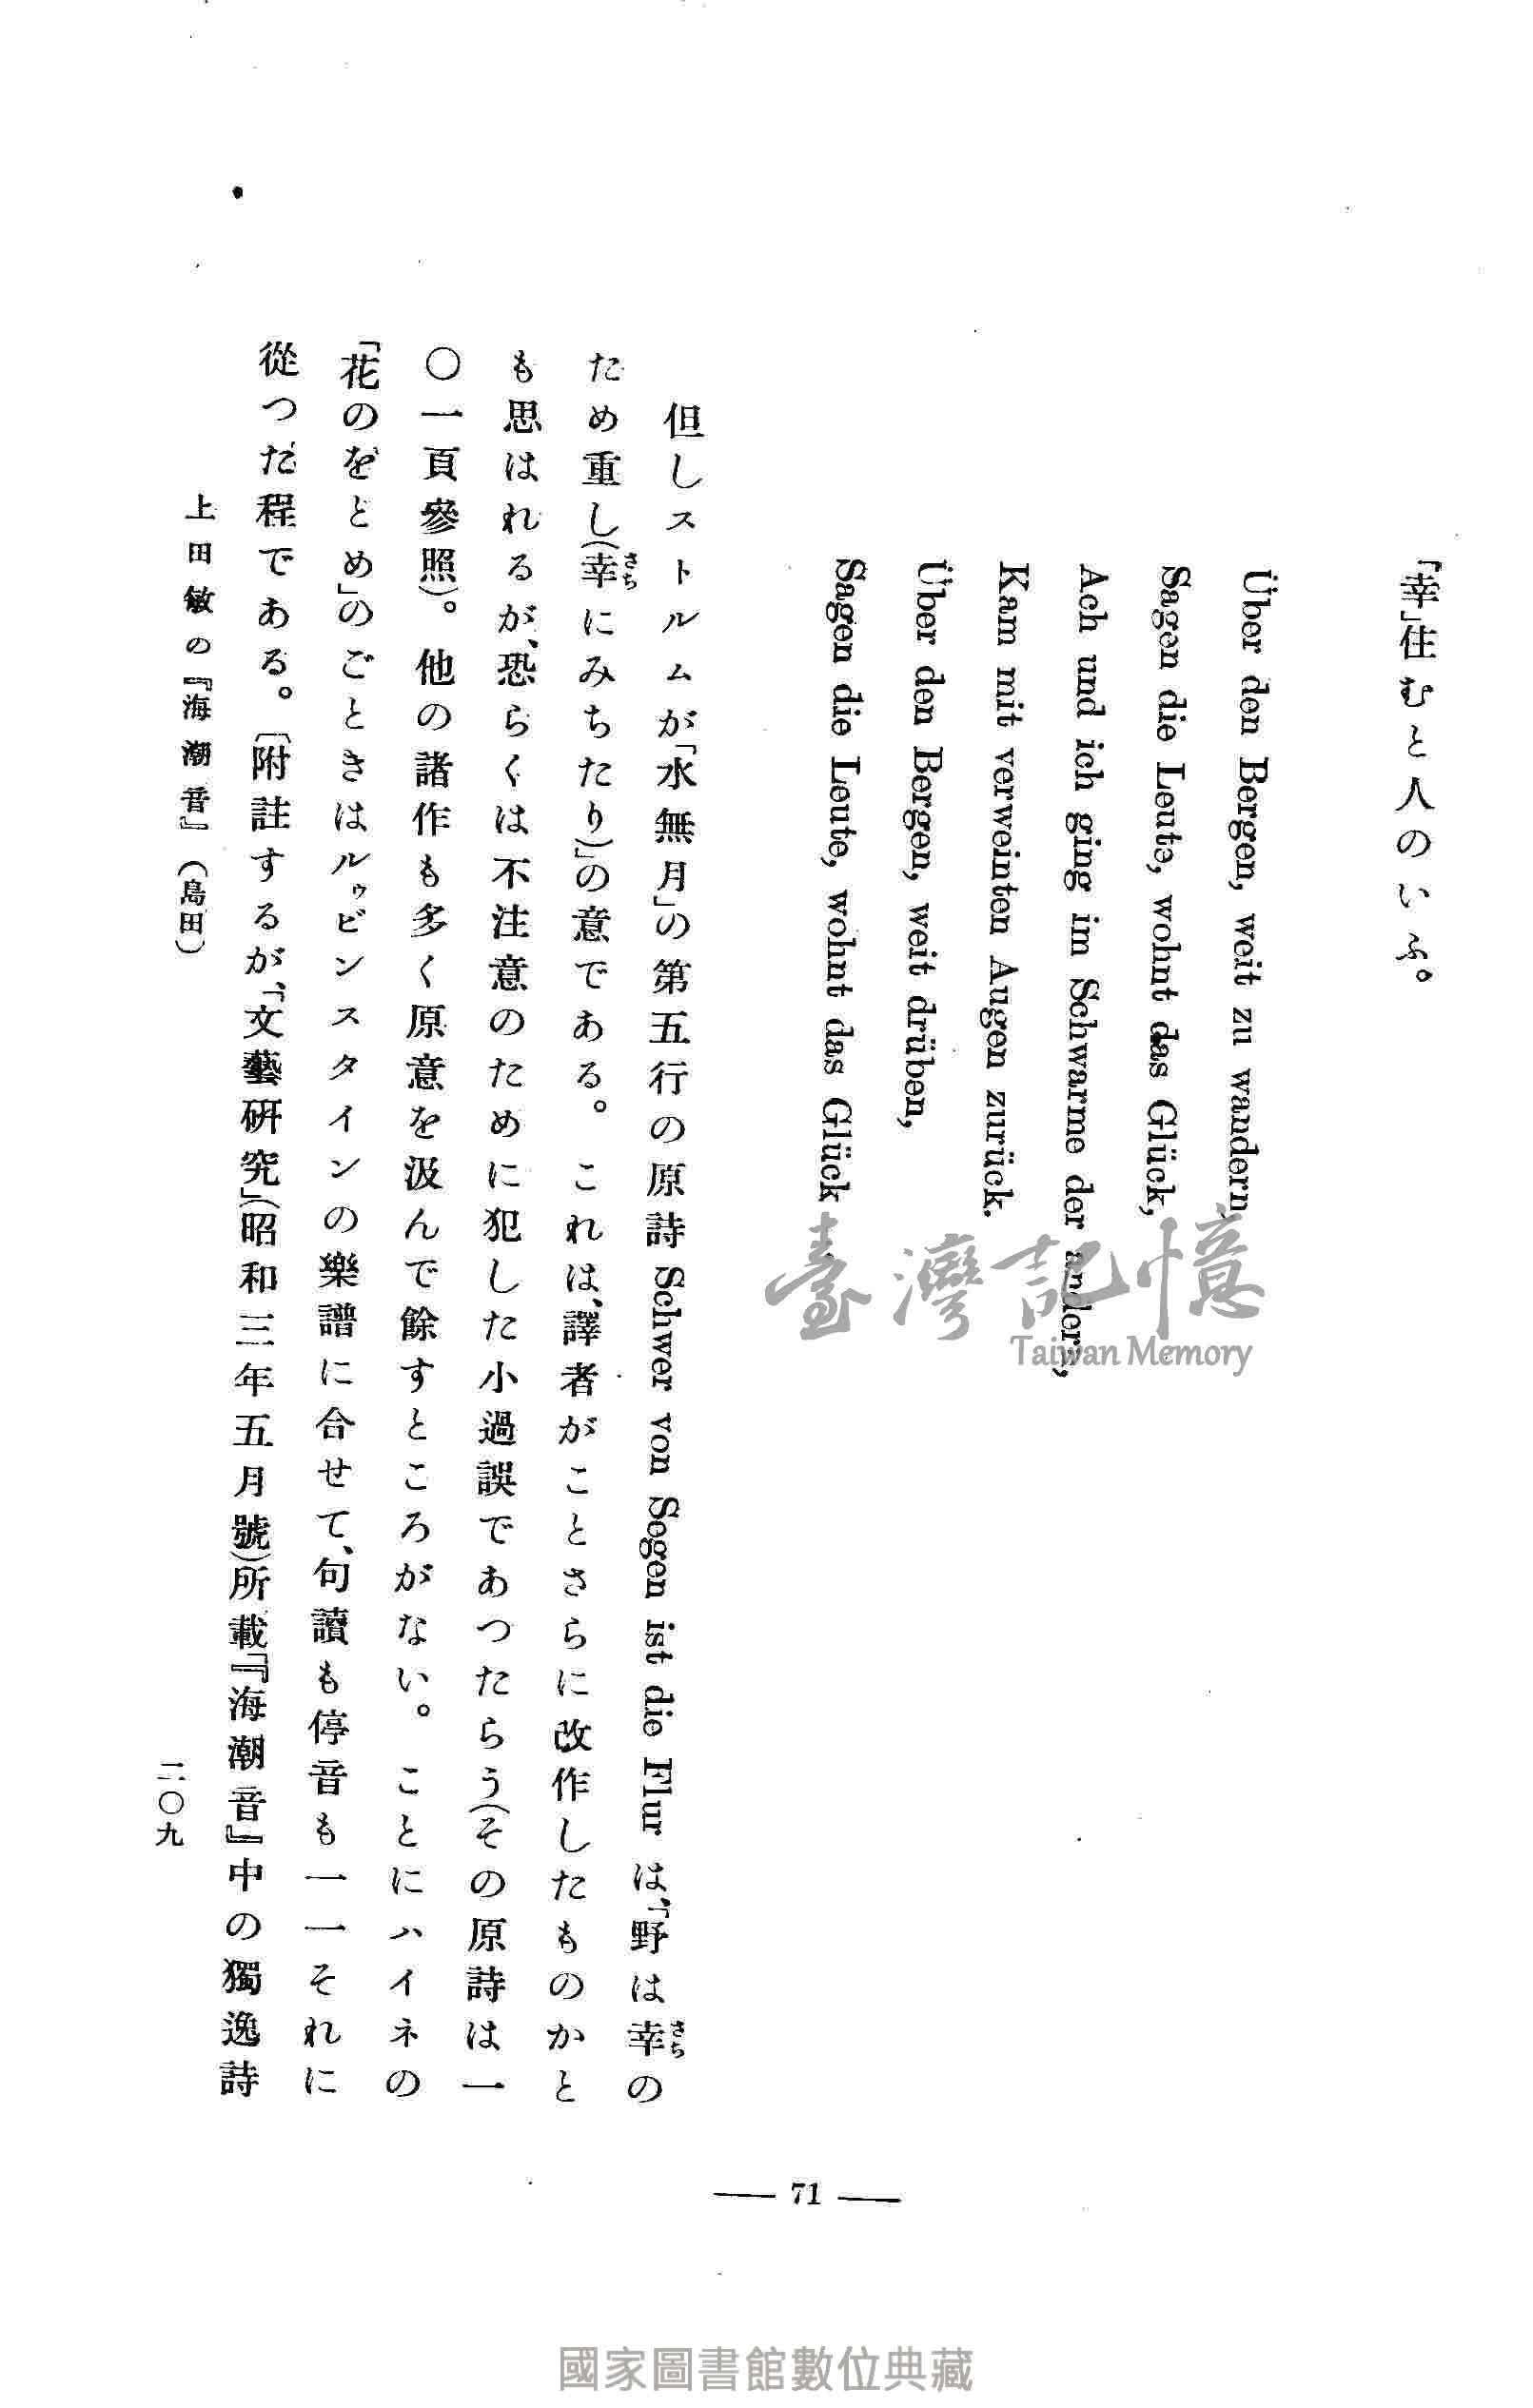 「幸」住むと人のいふ。
Über den Bergen, weit zu wandern,
Sagen die Leute, wohnt das Glück,
Ach und ich ging im Schwarme der andern,
Kam mit verweinten Augen zurück.
Über den Bergen, weit drüben,
Sagen die Leute, wohnt das Glück
但しストルムが「水無月」の第五行の原詩 Schwer von Segen ist die Flur は、「野は幸さちの
ため重し(幸さちにみちたり)」の意である。これは、譯者がことさらに改作したものかと
も思はれるが、恐らくは不注意のために犯した小過誤であつたらう(その原詩は一
〇一頁參照)。他の諸作も多く原意を汲んで餘すところがない。ことにハイネの
「花のをとめ」のごときはルゥビンスタインの樂譜に合せて、句讀も停音も一一それに
從つた程である。〔附註するが、「文藝研究」(昭和三年五月號)所載『「海潮音』中の獨逸詩
上田敏の『海潮音』(島田)
二〇九
71
臺灣記憶
Taiwan Memory
國家圖書館數位典藏